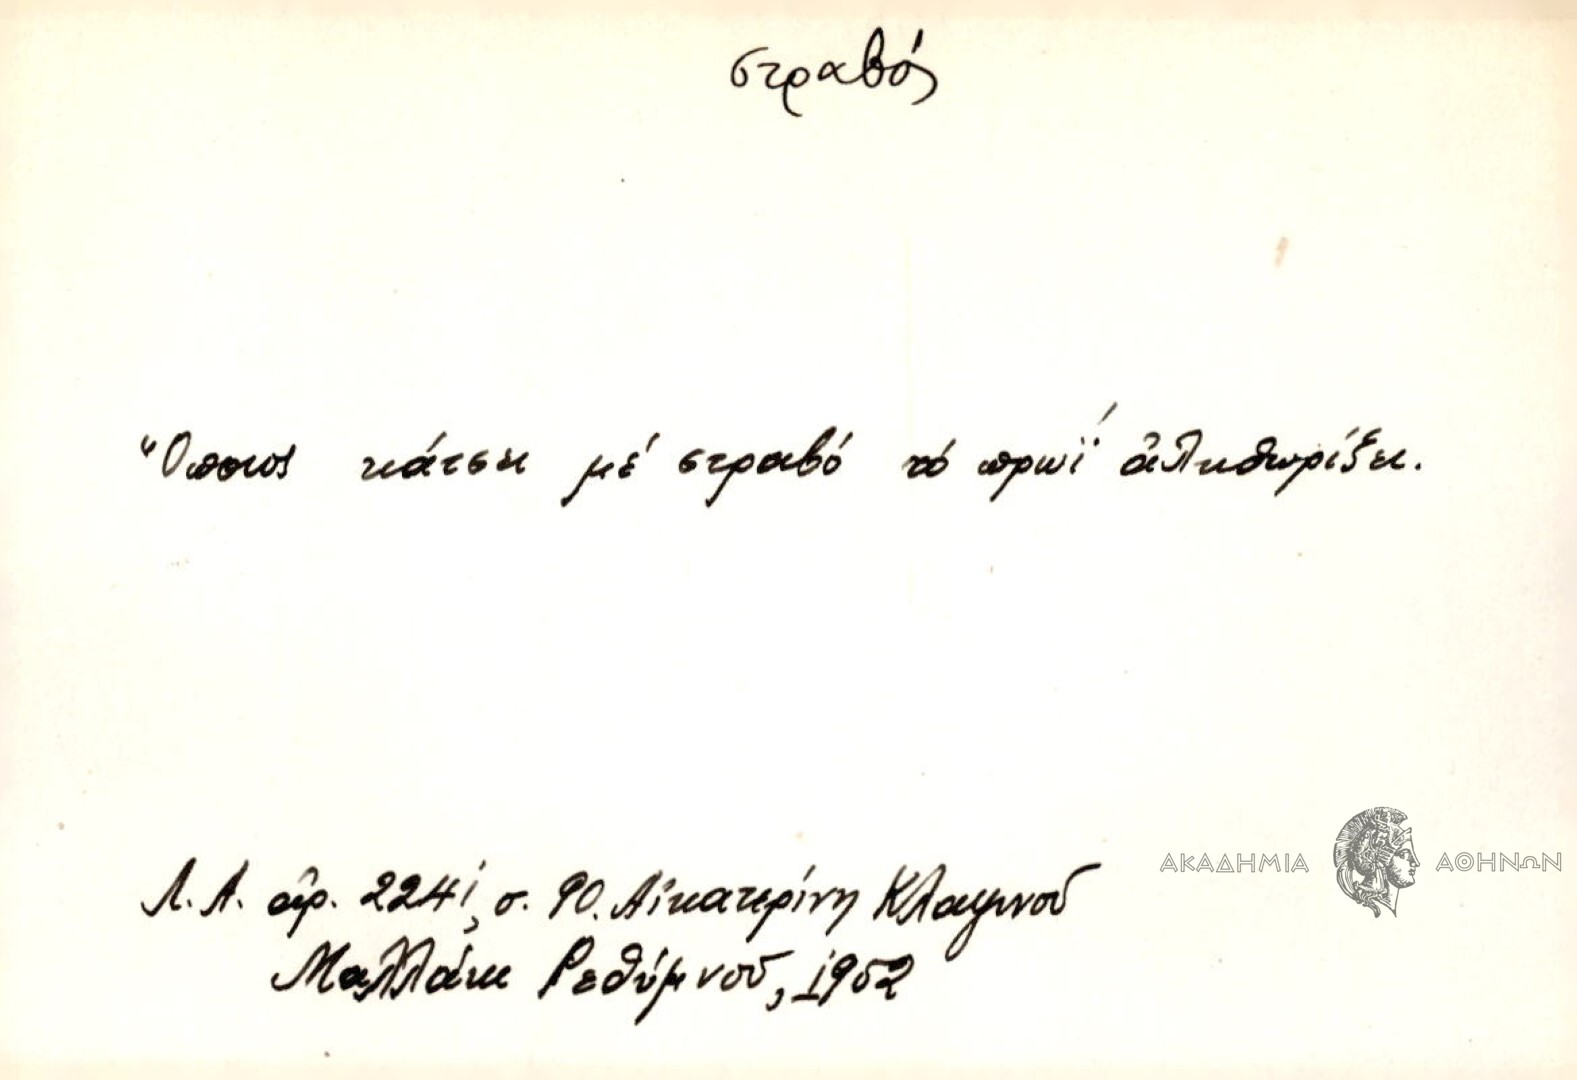 στραβός
Ὅποιος κάτσει μέ στραβό τό πρωΐ ἀλληθωρίζει.
Λ.Α. ἀρ. 2241, σ. 90. Αἰκατερίνη
Μαλλάκι Ρεθύμνου, 1952
ΑΚΑΔΗΜΙΑ ΑΘΗΝΩΝ